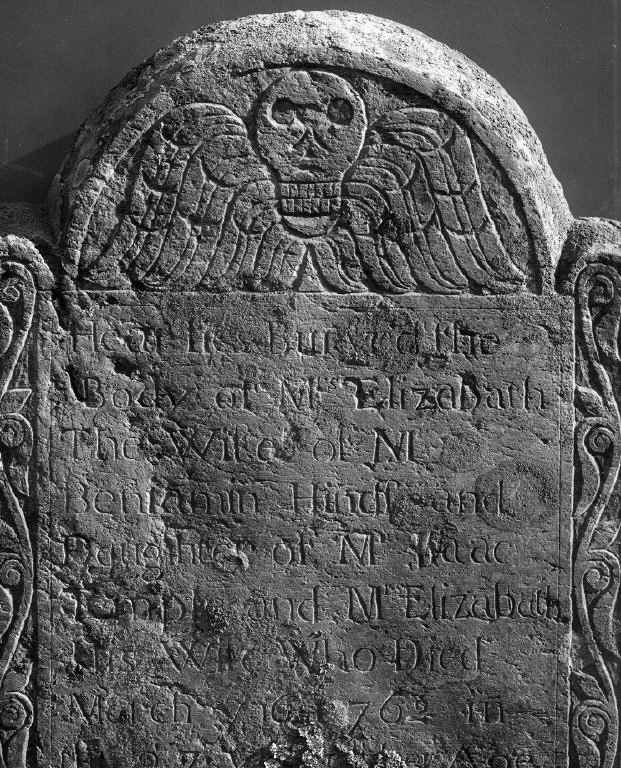 Hear lies Buryed the
Body of Mrs Elizabath
The Wife of Mr
Beniamin Hinds and
Daughter of Mr Isaac
Temple and Mrs Elizabath
His Wife Who Died
March y 16 1762 in
27 Age